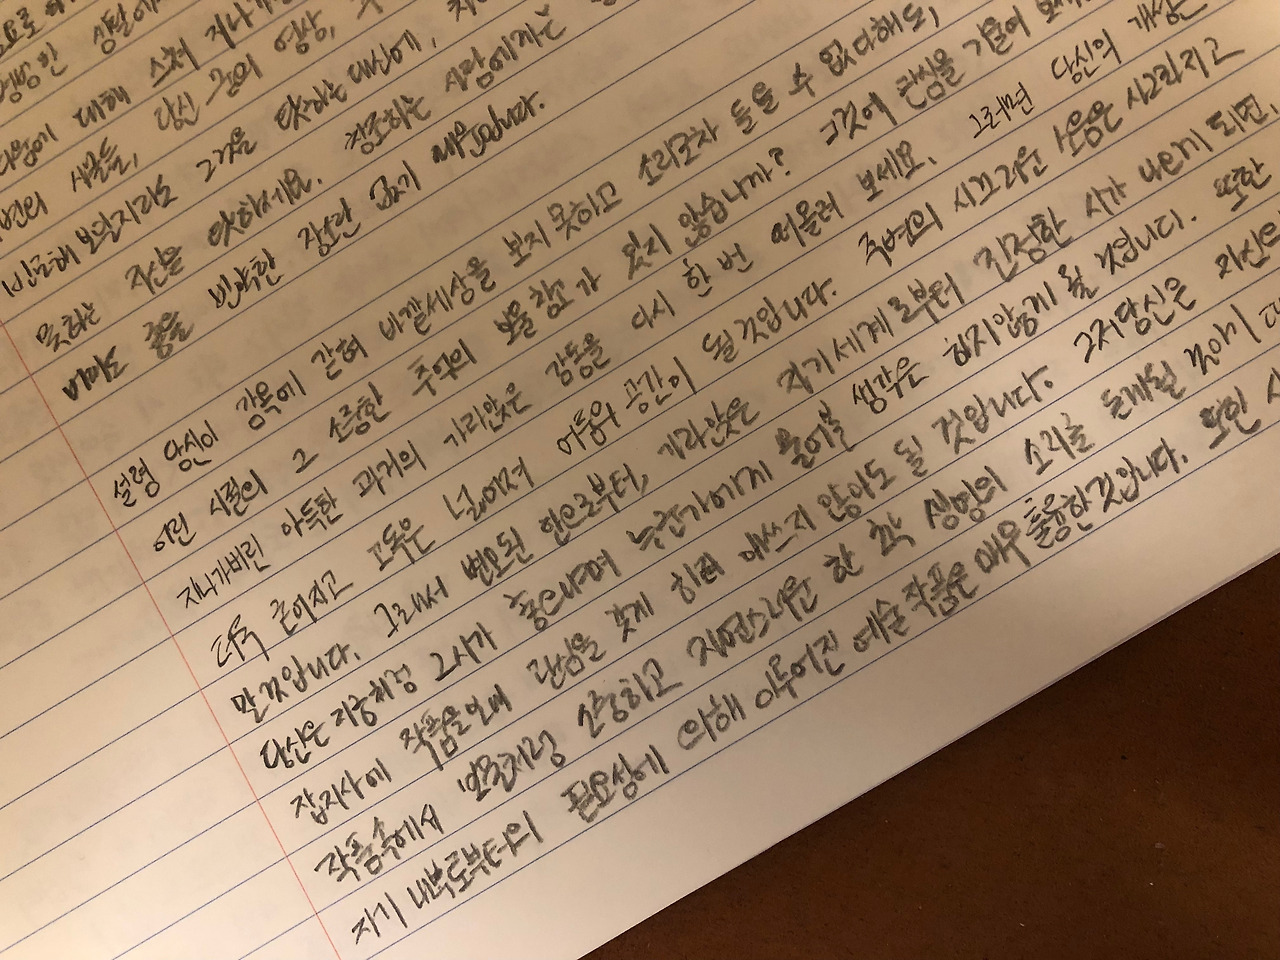 평범한 생활에
대해 스쳐 지나가
사물들, 당신 꿈의 영상,
보일지라도 그것을 탓하는 대신에,
못하는 자신을 탓하세요. 창조하는 사람에게는
빈약한 장소란 없기 때문입니다.
설령 당신이 감옥에 갇혀 바깥세상을 보지 못하고 소리조차 들을 수 없다해도,
어린 시절의 그 소중한 추억의 보물창고가 있지 않습니까? 그것에 관심을 기울여
지나가버린 아득한 과거의 가라앉은 감동을 다시 한 번 떠올려 보세요. 그러면 당신의 개성은
더욱 고독은 넓어져 어둠의 공간이 될 것입니다. 주변의 시끄러운 소음은 사그라지고
말 것입니다. 그래서 변모된 안으로부터, 가라앉은 자기세계로부터 진정한 시가 나온게 되면,
당신은 2시가 누군가에게 물어볼 생각은 하지않게 될 것입니다. 또한
잡지사에 작품을 관심을 갖게 하려 애쓰지 않아도 될 것입니다. 그저 당신은 자신의
작품속에서 보물처럼 소중하고 자연스러운 한 삶 생명의 소리를
자기 내부로부터의 필요성에 의해 이루어진 예술작품은 매우 훌륭한것입니다. 또한